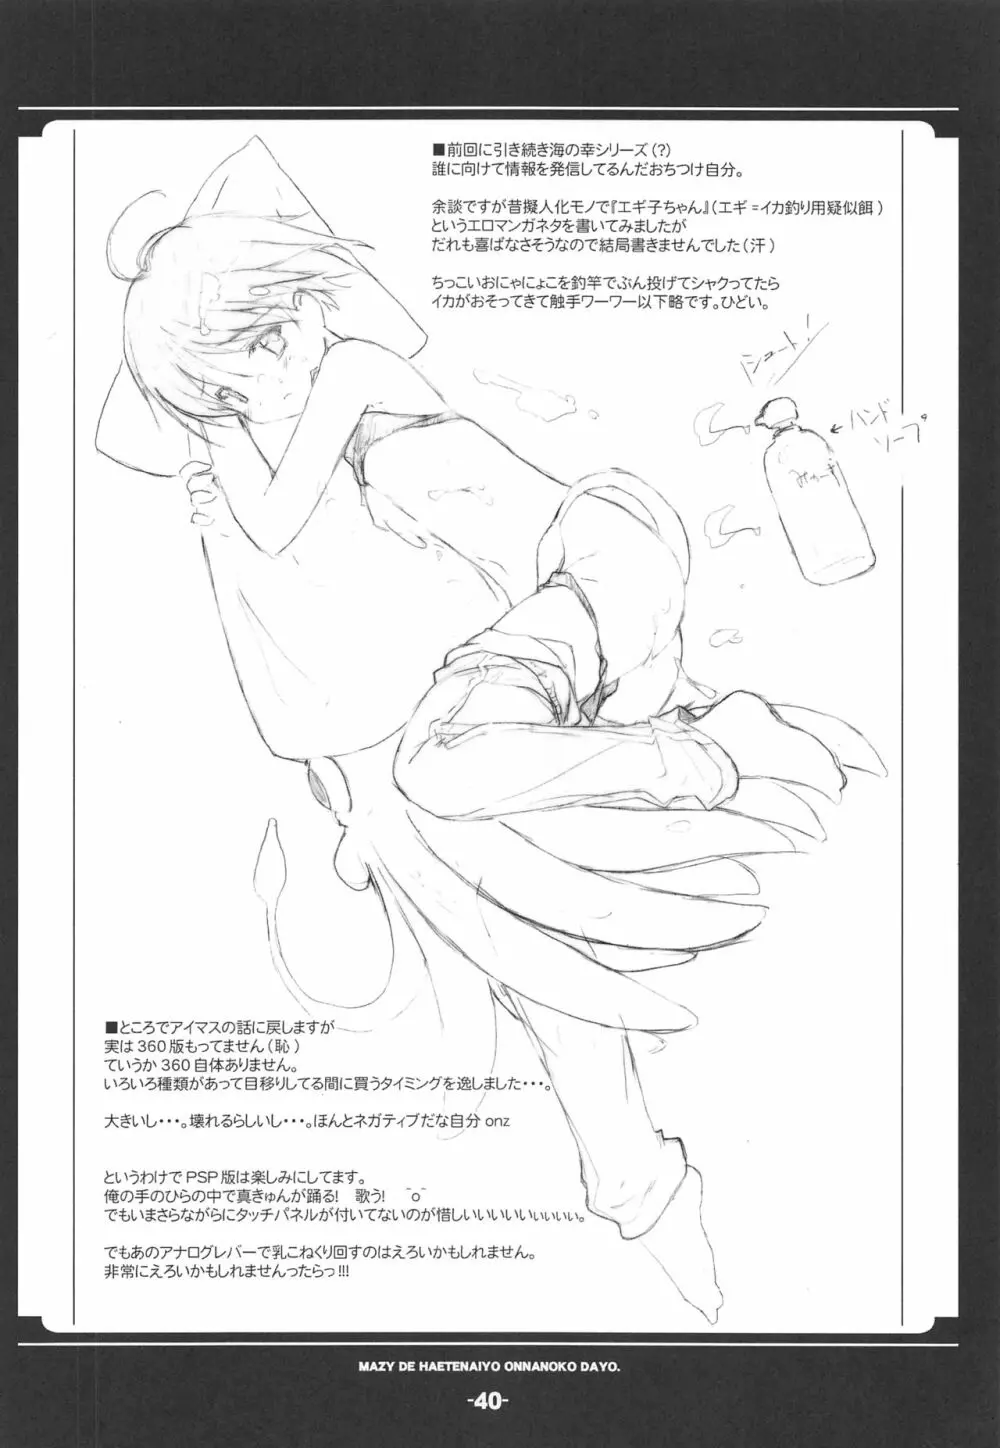 ■前回に引き続き海の幸シリーズ(?)
誰に向けて情報を発信してるんだおちつけ自分。
余談ですが昔擬人化モノで『エギ子ちゃん』(エギ=イカ釣り用疑似餌)
というエロマンガネタを書いてみましたが
だれも喜ばなさそうなので結局書きませんでした(汗)
ちっこいおにゃにょこを釣竿でぶん投げてシャクってたら
イカがおそってきて触手ワーワー以下略です。ひどい。
シュート!
←ハンド
ソープ
■ところでアイマスの話に戻しますが
実は360版もってません(恥)
ていうか360自体ありません。
いろいろ種類があって目移りしてる間に買うタイミングを逸しました・・・。
大きいし・・・。壊れるらしいし・・・。ほんとネガティブだな自分 onz
というわけでPSP版は楽しみにしてます。
俺の手のひらの中で真きゅんが踊る! 歌う! ¯o¯
でもいまさらながらにタッチパネルが付いてないのが惜しいいいいいぃぃぃぃ。
でもあのアナログレバーで乳こねくり回すのはえろいかもしれません。
非常にえろいかもしれませんったらっ!!!
MAZY DE HAETENAIYO ONNANOKO DAYO.
-40-